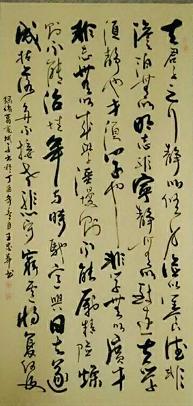 夫君子之行静以修身儉以養德非
澹泊無以明志非寧静無以致遠夫學
須静也才須學也非學無以廣才
非志無以成學淫慢則不能勵精險躁
則不能治性年與時馳意與日去遂
成枯落多不接世悲守窮廬將復何及